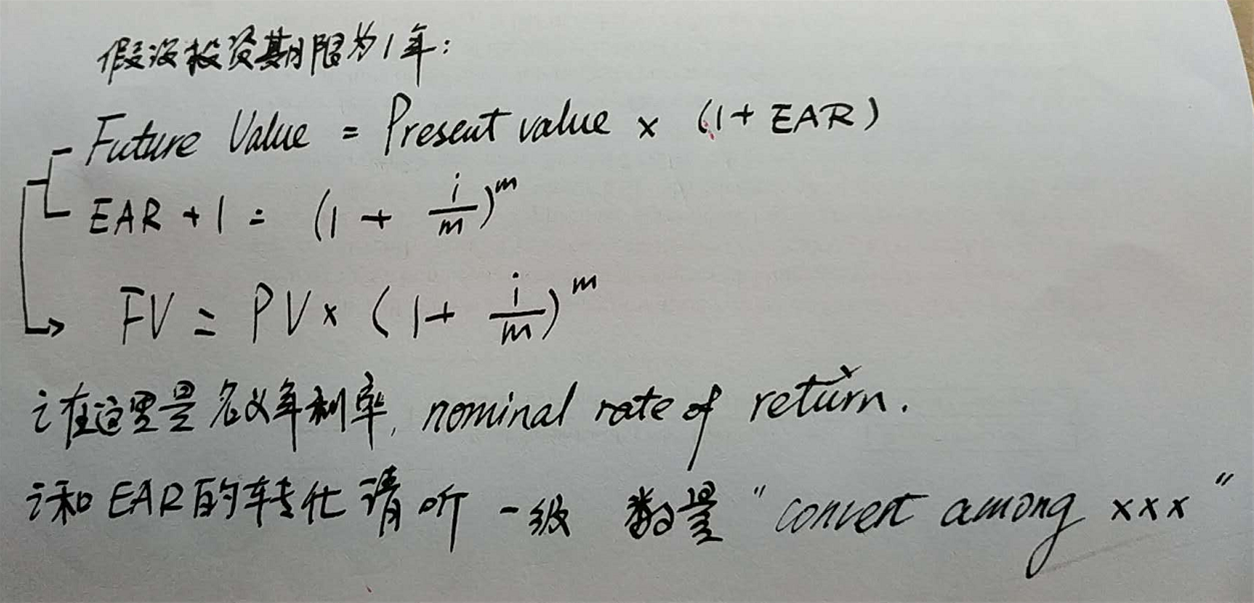 假设投资期限为1年:
Future Value = Present value × (1+ EAR)
EAR + 1 = (1 + i/m)^m
FV = PV × (1+ i/m)^m
i在这里是名义年利率, nominal rate of return.
i和EAR的转化请听 一级 数量 "convert among xxx"